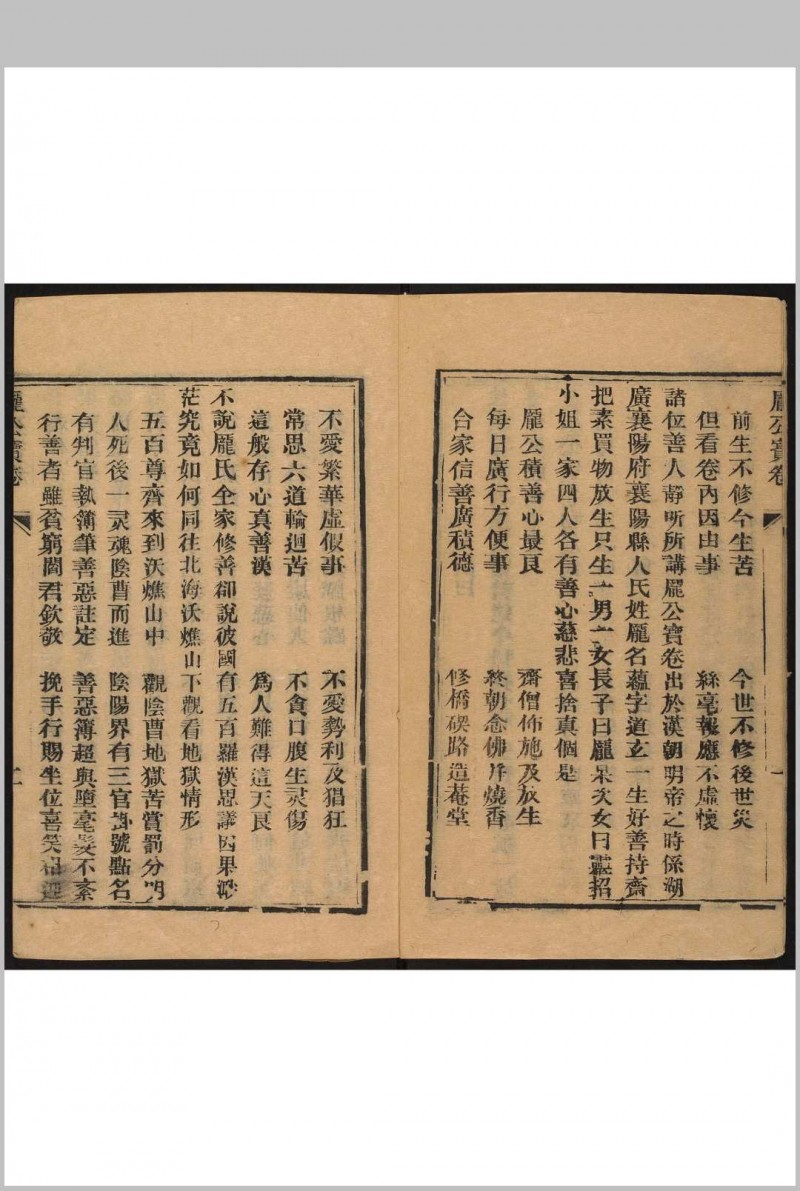 龐公寶卷
前生不修今生苦　今世不修後世災
但看卷內因由事　絲毫報應不虛懷
諸位善人靜听所講龐公寶卷出於漢朝明帝之時係湖
廣襄陽府襄陽縣人氏姓龐名蘊字道玄一生好善持齋
把素買物放生只生一男一女長子曰龐杲次女曰靈招
小姐一家四人各有善心慈悲喜捨真個是
龐公積善心最良　齋僧佈施及放生
每日廣行方便事　終朝念佛并燒香
合家信善廣積德　修橋砌路造菴堂
不愛繁華虛假事　不愛勢利及猖狂
常思六道輪迴苦　不貪口腹生灵傷
這般存心真善漢　為人難得這天良
不說龐氏全家修善卻說彼國有五百羅漢思議因果渺
茫究竟如何同往北海沃燋山下觀看地獄情形
五百尊齊來到沃燋山中　觀陰曹地獄苦賞罰分明
人死後一灵魂陰曹而進　陰陽界有三官掛號點名
有判官執簿筆善惡註定　善惡簿超與墮毫髮不紊
行善者雖貧窮閻君欽敬　挽手行賜坐位喜笑相迎
龐公寶卷